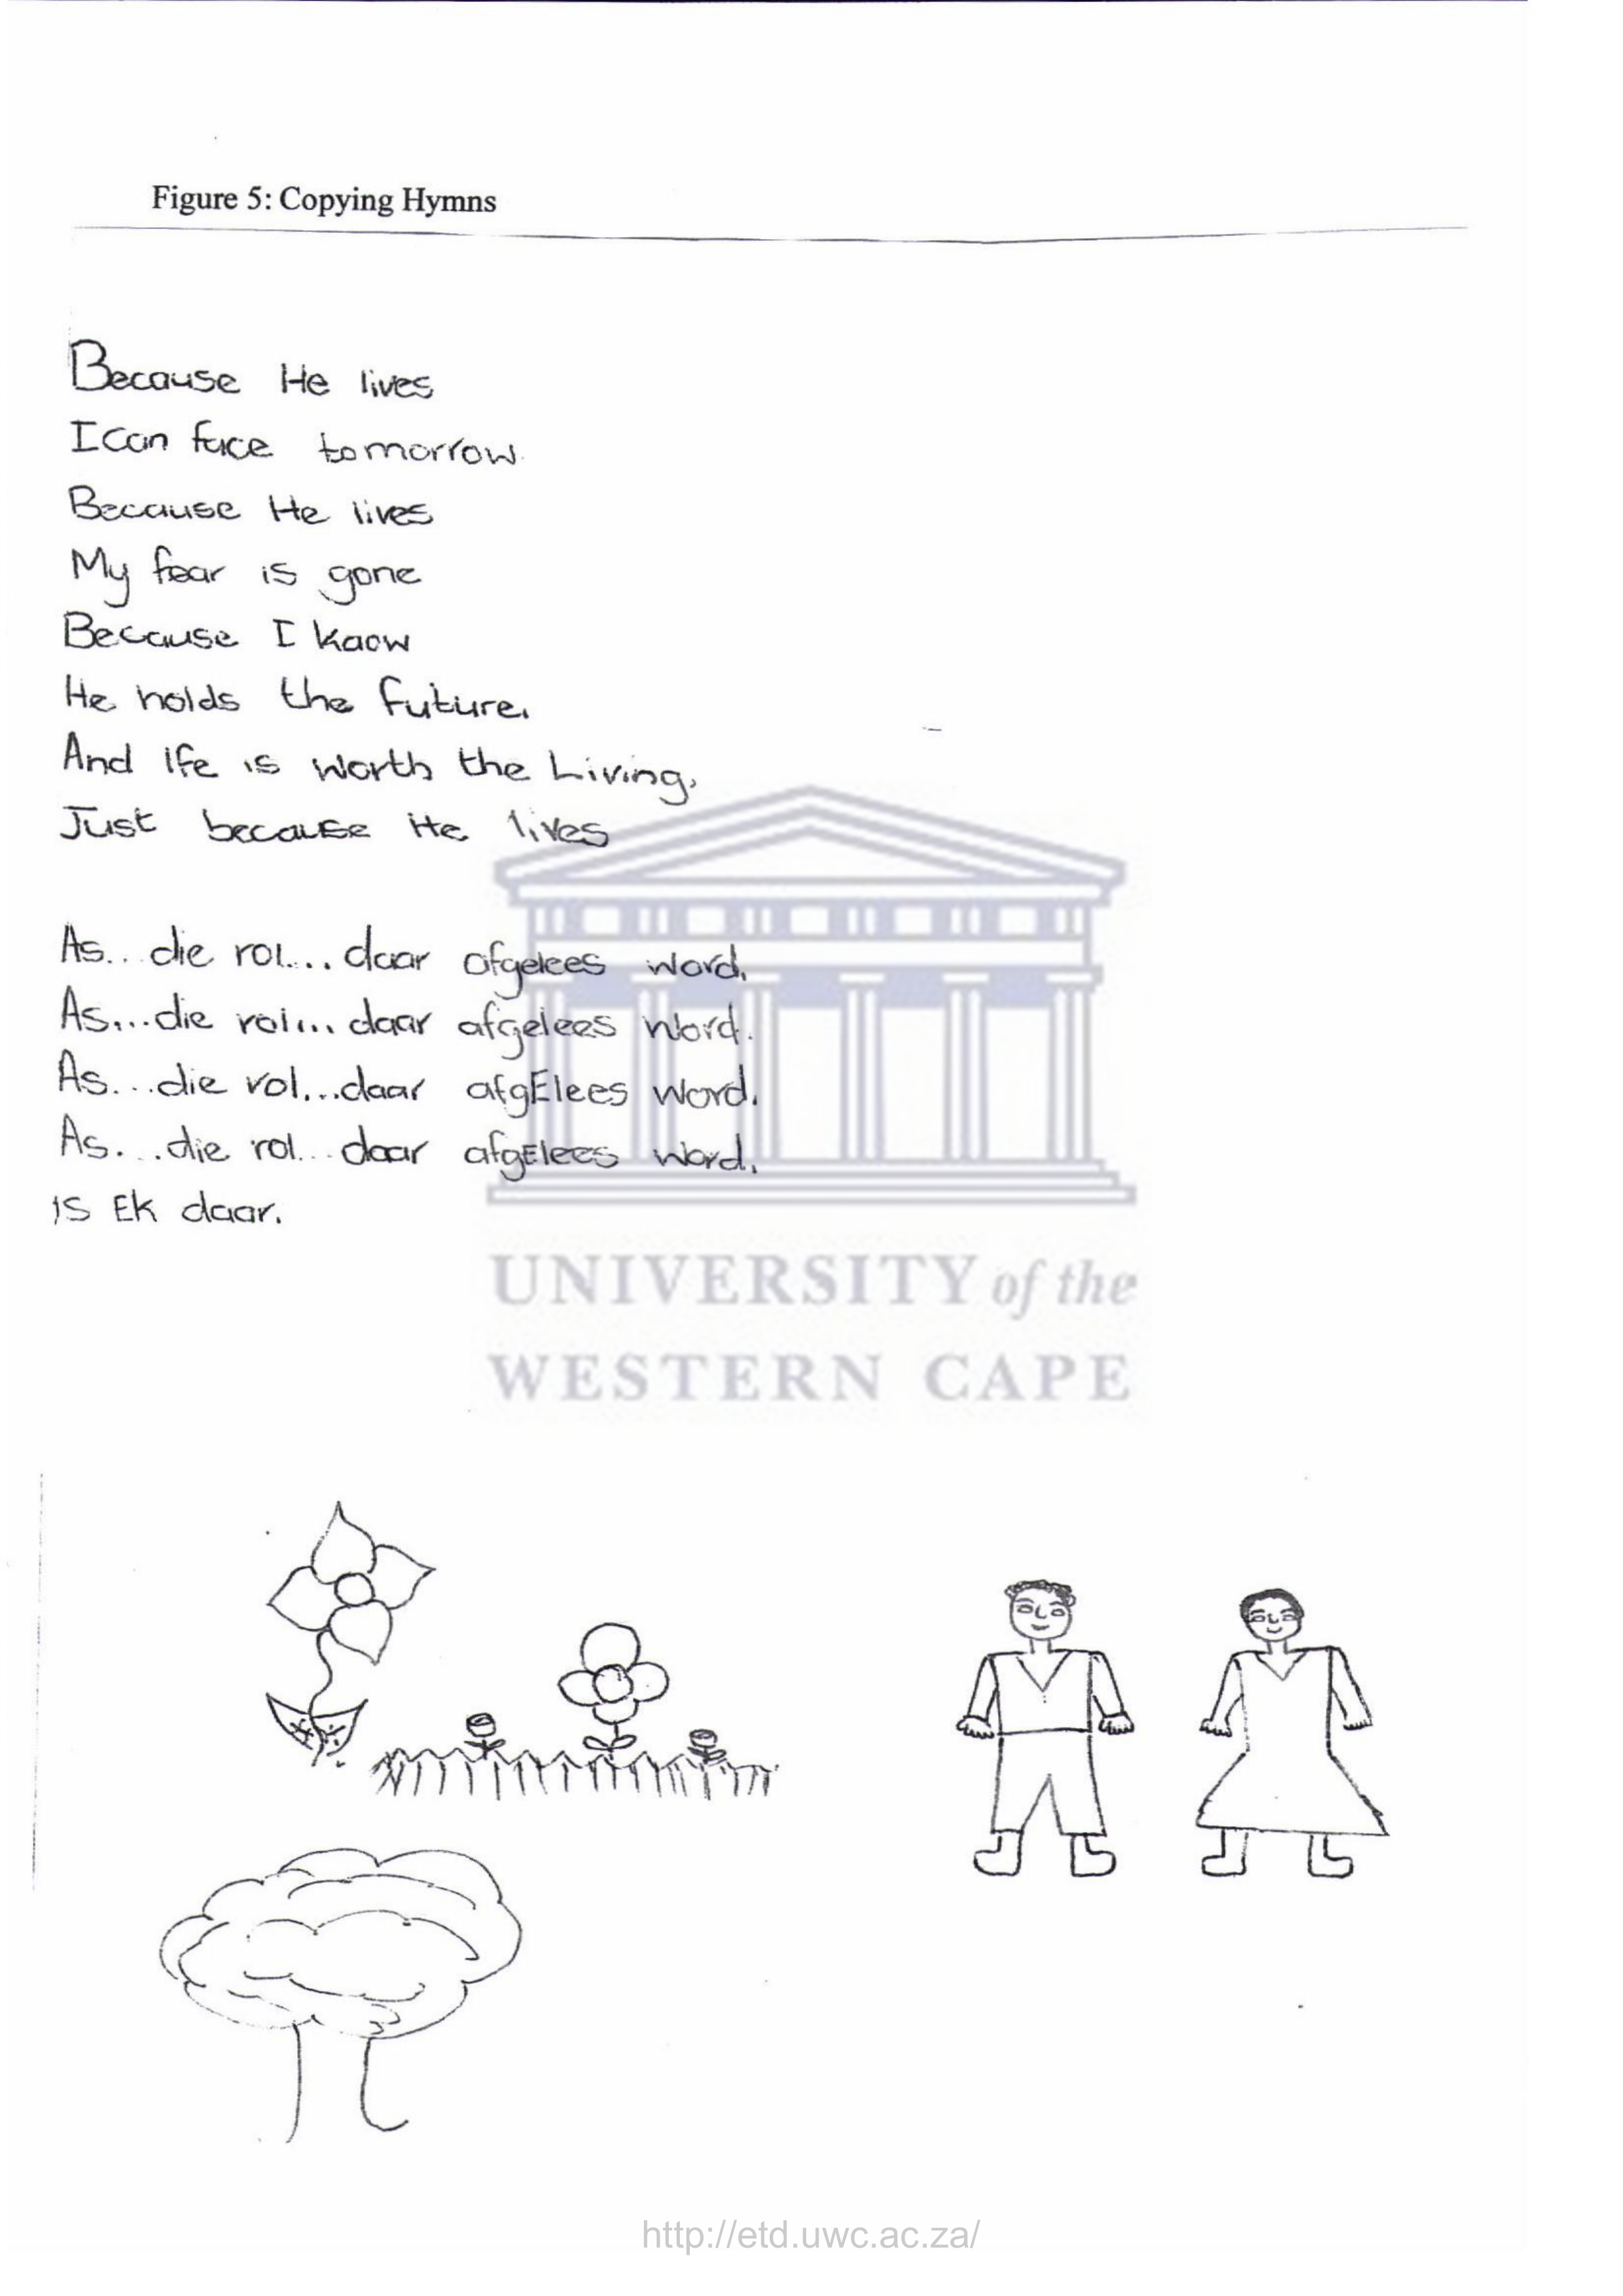 Figure 5: Copying Hymns
Because He lives
I can face tomorrow
Because He lives
My fear is gone
Because I kaow
He holds the future.
And lfe is worth the Living.
Just because He lives
As... die rol.... daar afgelees word.
As....die rol.... daar afgelees word.
As...die rol...daar afgElees word.
As...die rol... daar afgElees word.
is Ek daar.
UNIVERSITY of the
WESTERN CAPE
http://etd.uwc.ac.za/